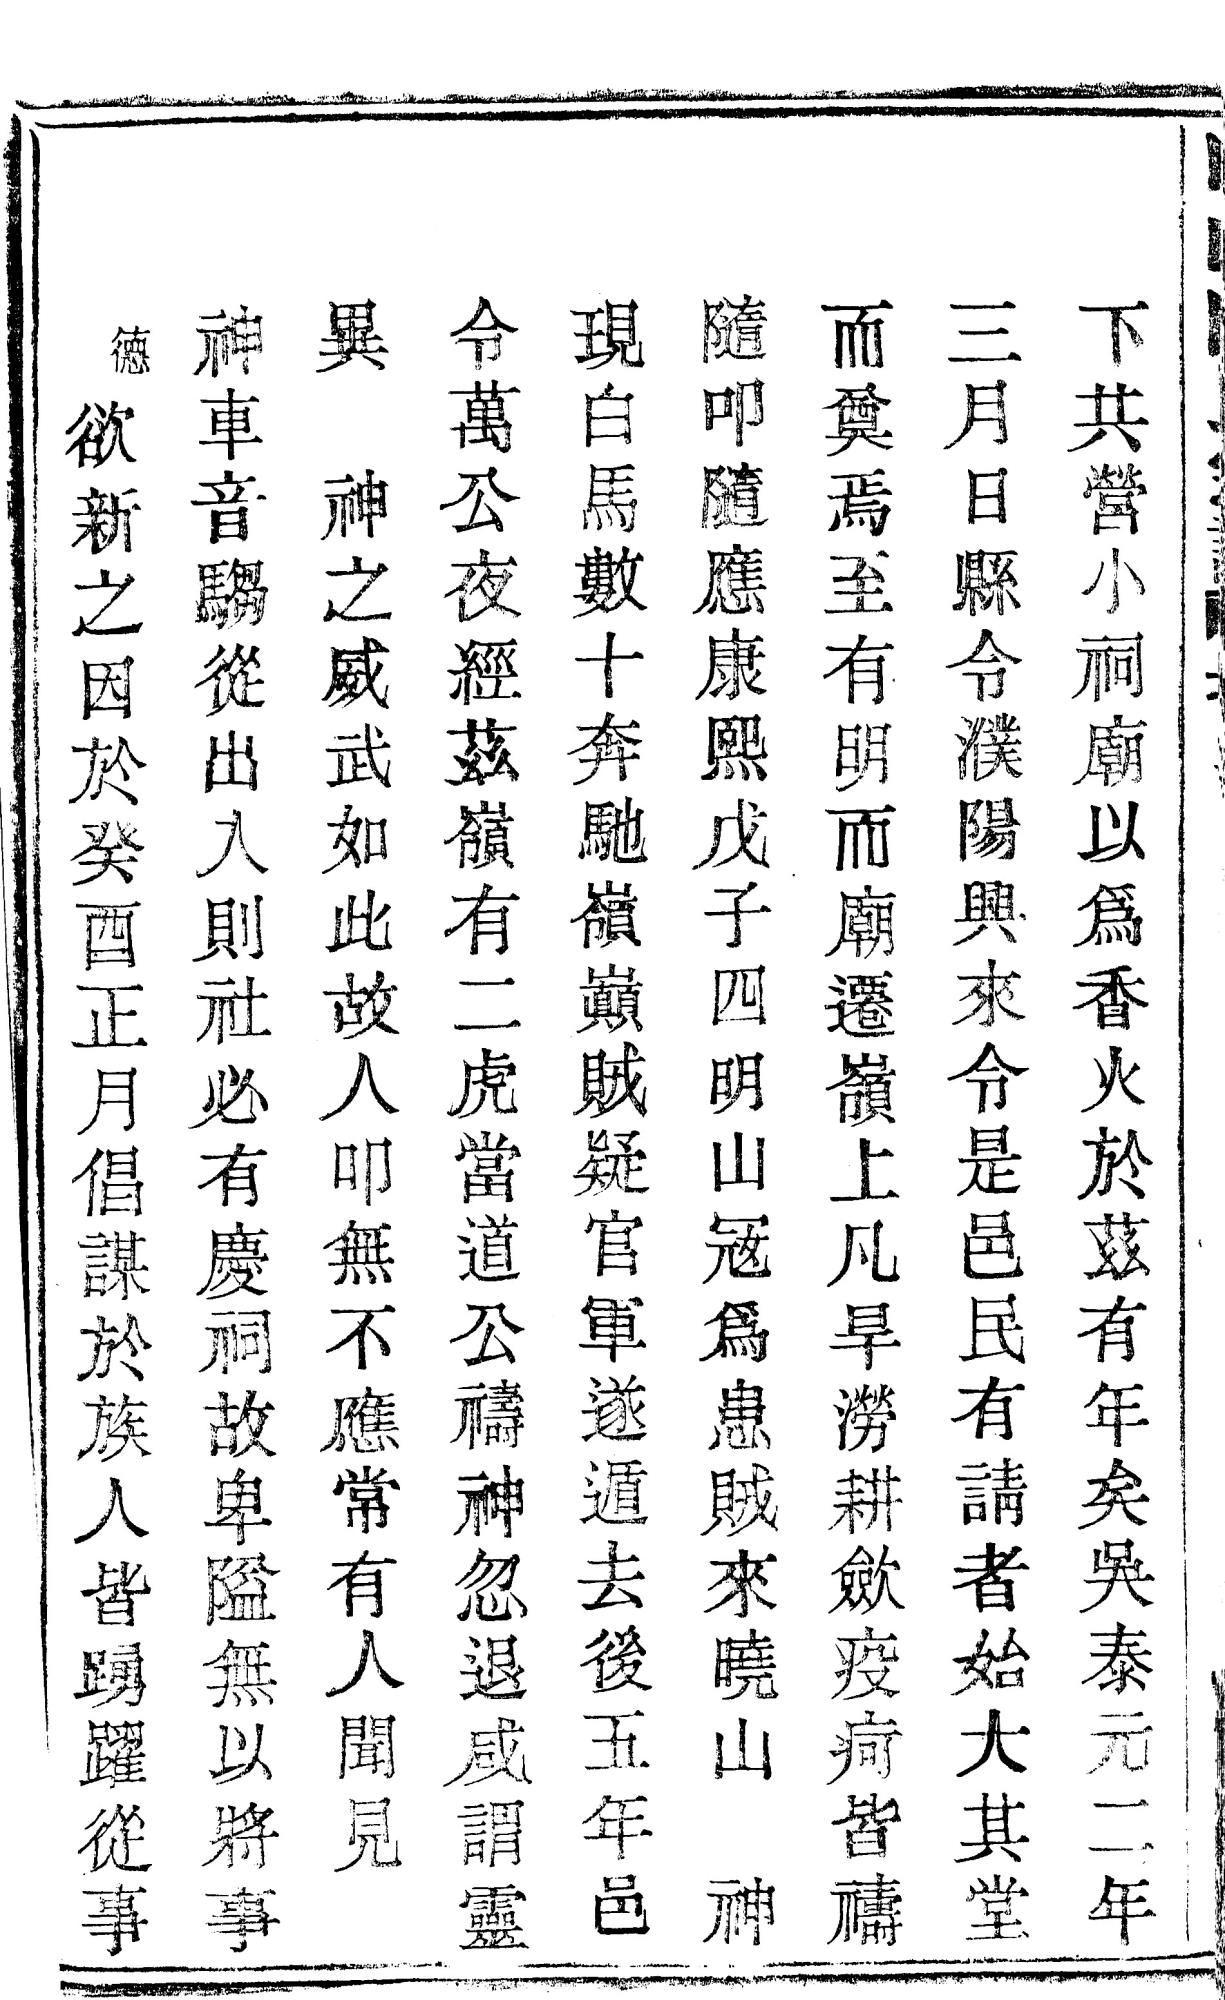 下共營小祠廟以爲香火於茲有年矣吳泰元二年
三月日縣令濮陽興來令是邑民有請者始大其堂
而奠焉至有明而廟遷嶺上凡旱澇耕斂疫疴皆禱
隨叩隨應康熙戊子四明山冦爲患賊來曉山　神
現白馬數十奔馳嶺巔賊疑官軍遂遁去後五年邑
令萬公夜經茲嶺有二虎當道公禱神忽退咸謂靈
異　神之威武如此故人叩無不應常有人聞見
神車音騶從出入則社必有慶祠故卑隘無以將事
德欲新之因於癸酉正月倡謀於族人皆踴躍從事